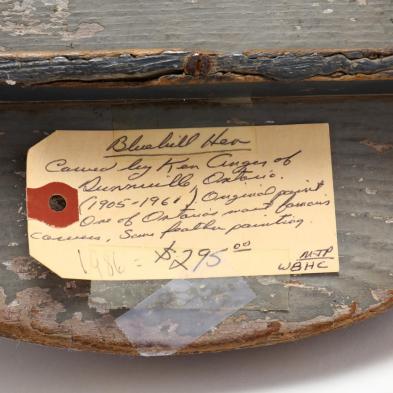 Bluebill Hen
Carved by Ken Anger of
Dunnville, Ontario.
(1905-1961) Original paint
One of Ontario's most famous
carvers, Some feather painting.
1986 = $295.00
MTP
WBHC